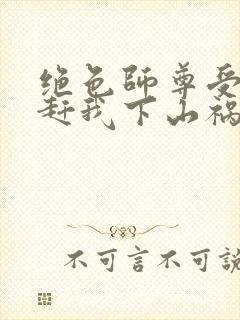 绝色師尊受
赶我下山祸
不可言不可說